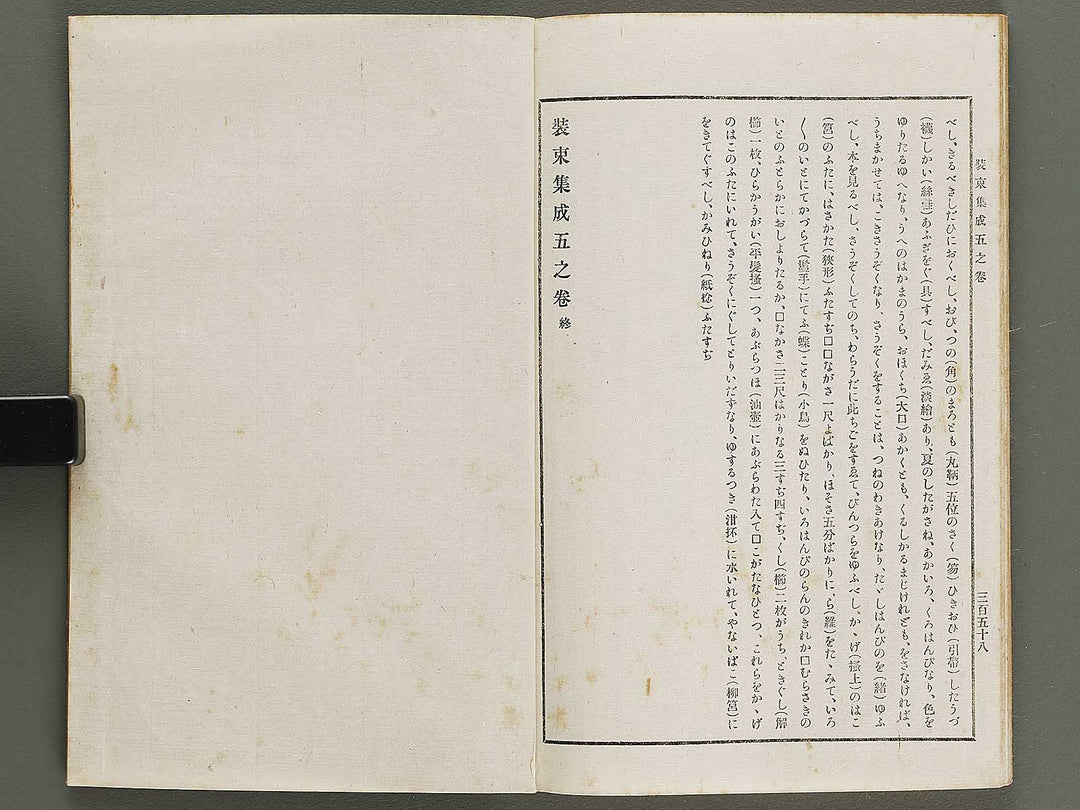 装束集成五之卷
三百五十八
べし、きるべきしだひにおくべし、おび、つの(角)のまろとも(丸鞆)五位のさく(笏)ひきおひ(引帶)したうづ
(襪)しかい(絲鞋)あふぎをぐ(具)すべし、だみゑ(淡繪)あり、夏のしたがさね、あかいろ、くろはんぴなり、色を
ゆりたるゆへなり、うへのはかまのうら、おほくち(大口)あかくとも、くるしかるまじけれども、をさなければ、
うちまかせては、こきさうぞくなり、さうぞくをすることは、つねのわきあけなり、たゞしはんぴのを(緒)ゆふ
べし、本を見るべし、さうぞくしてのち、わらうだに此ちごをすゑて、びんつらをゆふべし、かゝげ(搔上)のはこ
(筥)のふたに、はさかた(狹形)ふたすぢ□□ながさ一尺よばかり、ほそさ五分ばかりに、ら(羅)をたゝみて、いろ
〱のいとにてかづらて(鬘手)にてふ(蝶)ことり(小鳥)をぬひたり、いろはんぴのらんのきれか□むらさきの
いとのふとらかにおしよりたるか、□なかさ二三尺はかりなる三すぢ四すぢ、くし(櫛)二枚がうち、ときぐし(解
櫛)一枚、ひらかうがい(平髮搔)一つ、あぶらつほ(油壺)にあぶらわた入て□こがたなひとつ、これらをかゝげ
のはこのふたにいれて、さうぞくにぐしてとりいだすなり、ゆするつき(泔抔)に水いれて、やないばこ(柳筥)に
をきてぐすべし、かみひねり(紙捻)ふたすぢ
装束集成五之卷終